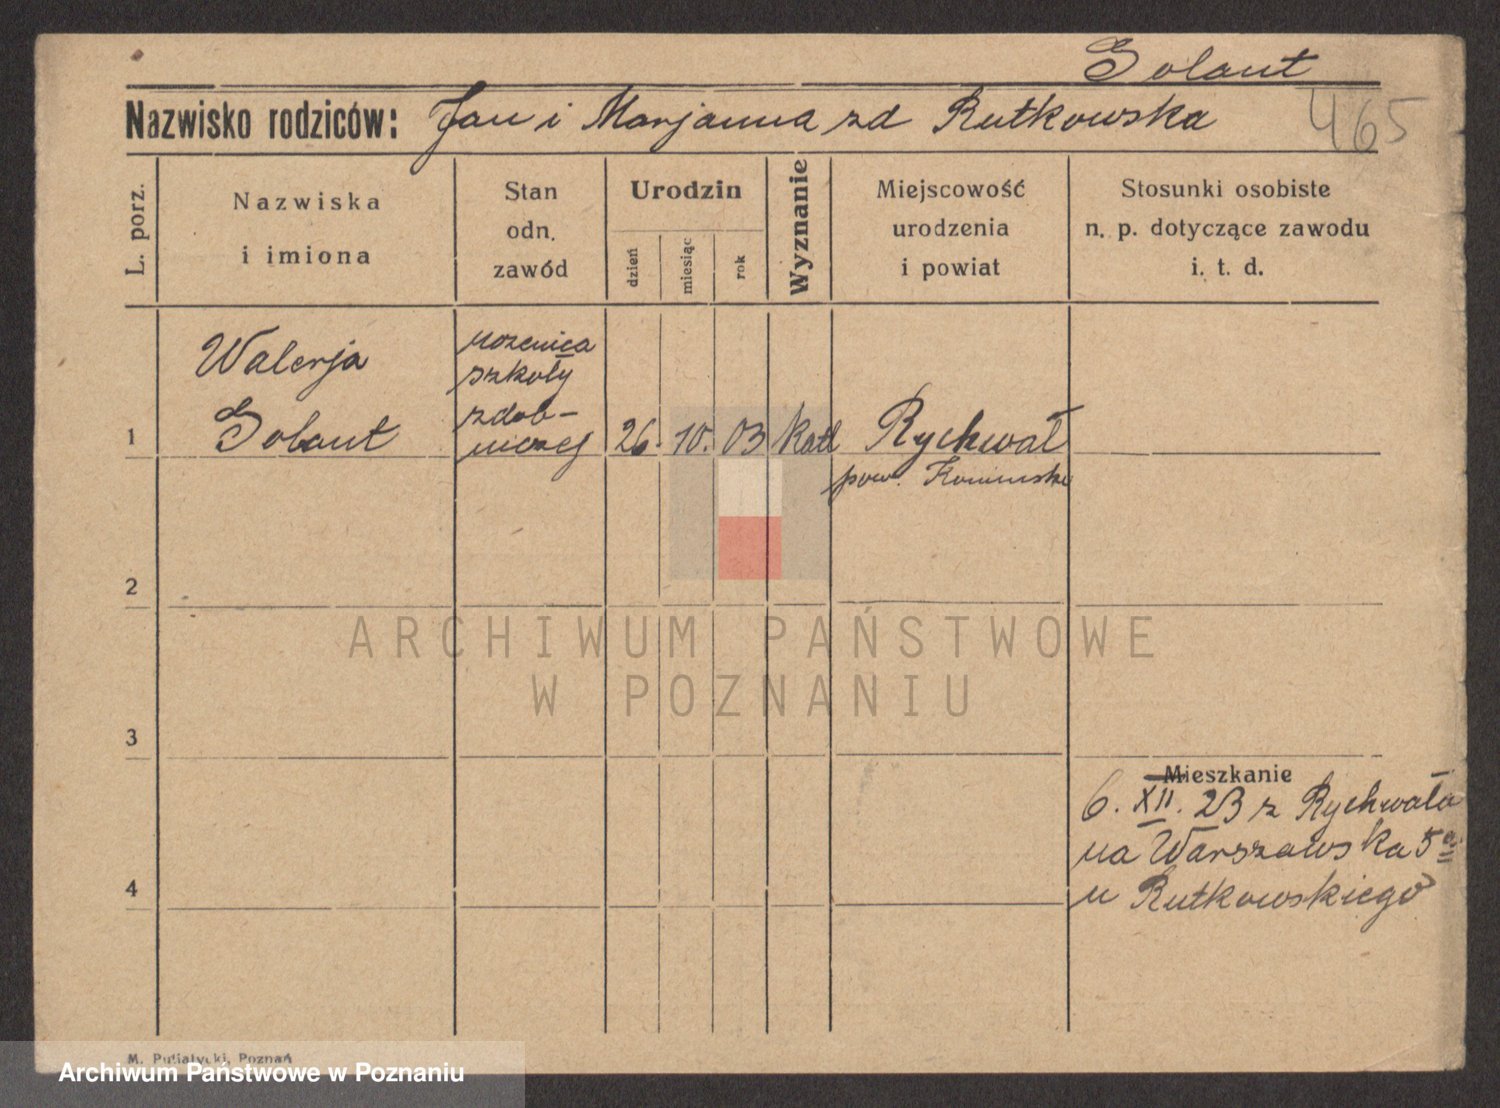 Golant
Nazwisko rodziców: Jan i Marjanna zd Rutkowska
465
L. porz.
Nazwiska
i imiona
Stan
odn.
zawód
Urodzin
dzień
miesiąc
rok
Wyznanie
Miejscowość
urodzenia
i powiat
Stosunki osobiste
n. p. dotyczące zawodu
i. t. d.
1
Walerja
Golant
uczenica
szkoły
zdob-
niczej
26. 10. 03
Katl
Rychwał
pow. Koninski
2
ARCHIWUM PAŃSTWOWE
W POZNANIU
3
4
Mieszkanie
6. XII. 23 z Rychwała
na Warszawska 5a
u Rutkowskiego
M. Putiatycki, Poznań
Archiwum Państwowe w Poznaniu